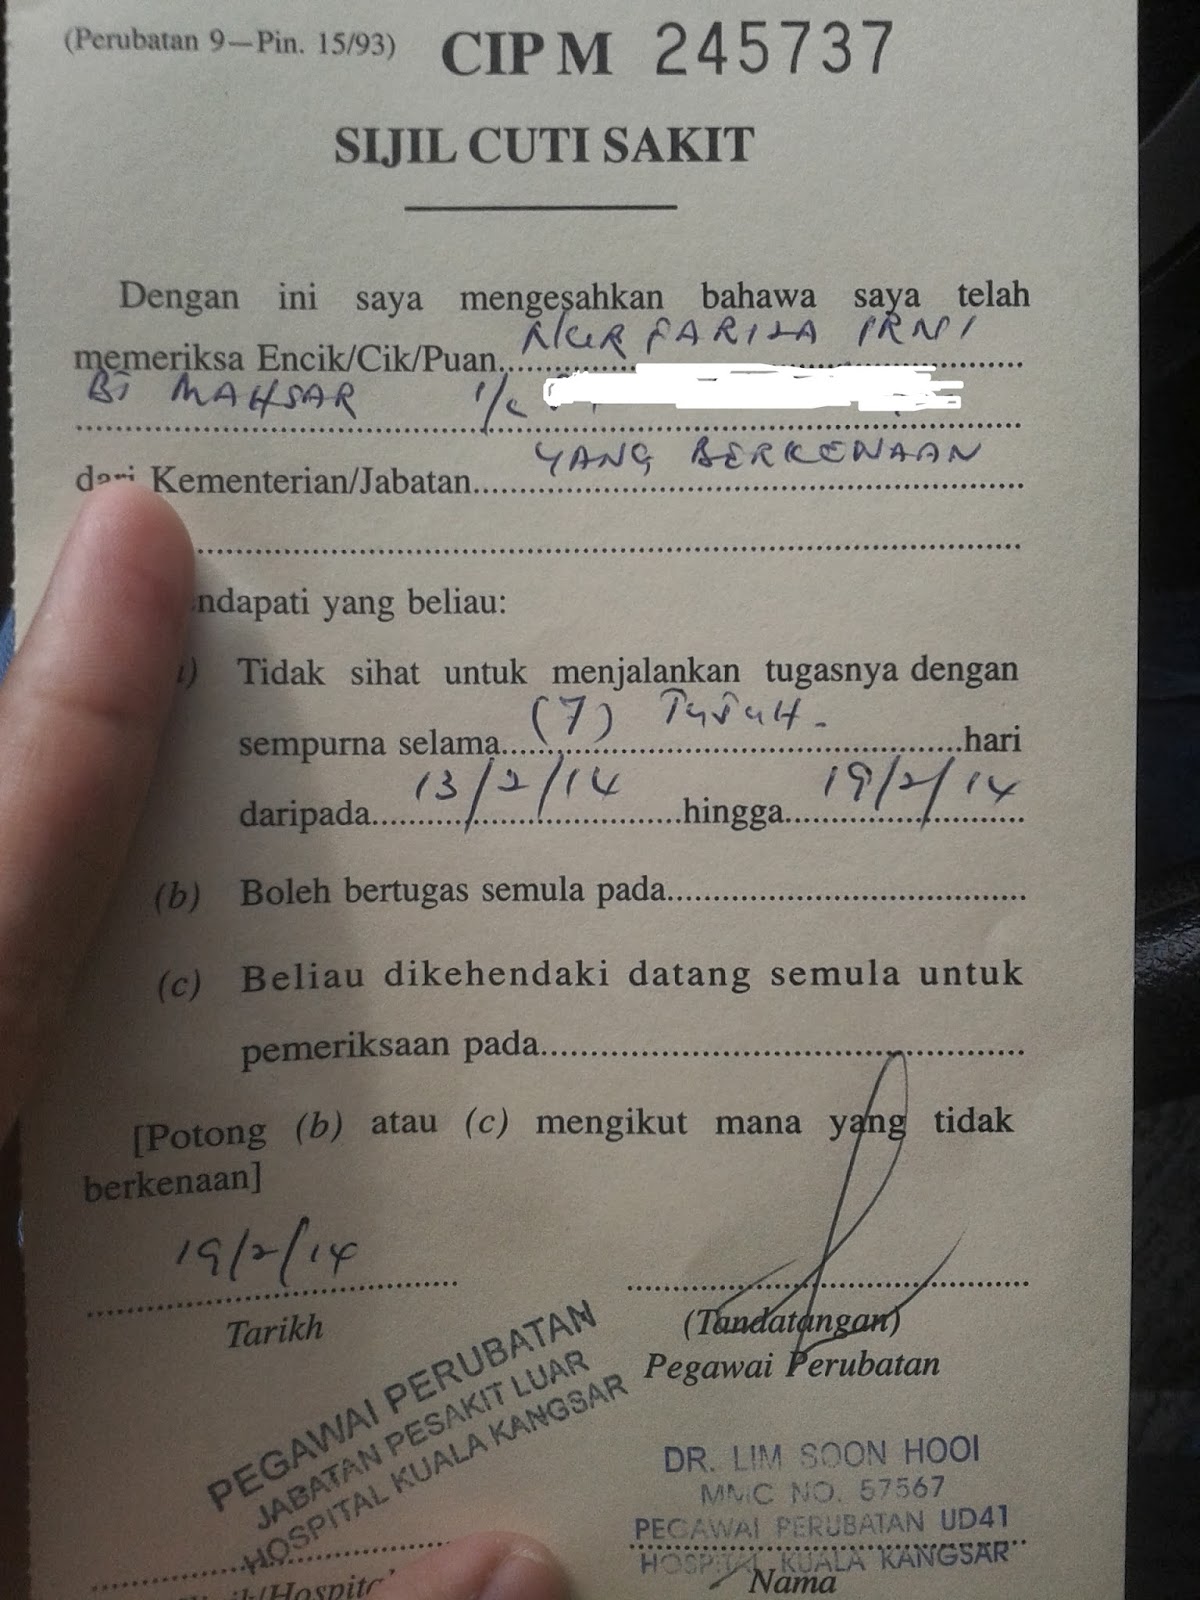 (Perubatan 9—Pin. 15/93) CIPM 245737
SIJIL CUTI SAKIT
Dengan ini saya mengesahkan bahawa saya telah
NUR FARIZA IRNI
memeriksa Encik/Cik/Puan
BT MAHSAR I/C
YANG BERKENAAN
dari Kementerian/Jabatan
ndapati yang beliau:
Tidak sihat untuk menjalankan tugasnya dengan
(7) TUJUH
sempurna selama hari
13/2/14 19/2/14
daripada hingga
(b) Boleh bertugas semula pada
(c) Beliau dikehendaki datang semula untuk
pemeriksaan pada
[Potong (b) atau (c) mengikut mana yang tidak
berkenaan]
19/2/14
Tarikh
(Tandatangan)
Pegawai Perubatan
PEGAWAI PERUBATAN
JABATAN PESAKIT LUAR
HOSPITAL KUALA KANGSAR
DR. LIM SOON HOOI
MMC NO. 57567
PEGAWAI PERUBATAN UD41
HOSPITAL KUALA KANGSAR
Nama